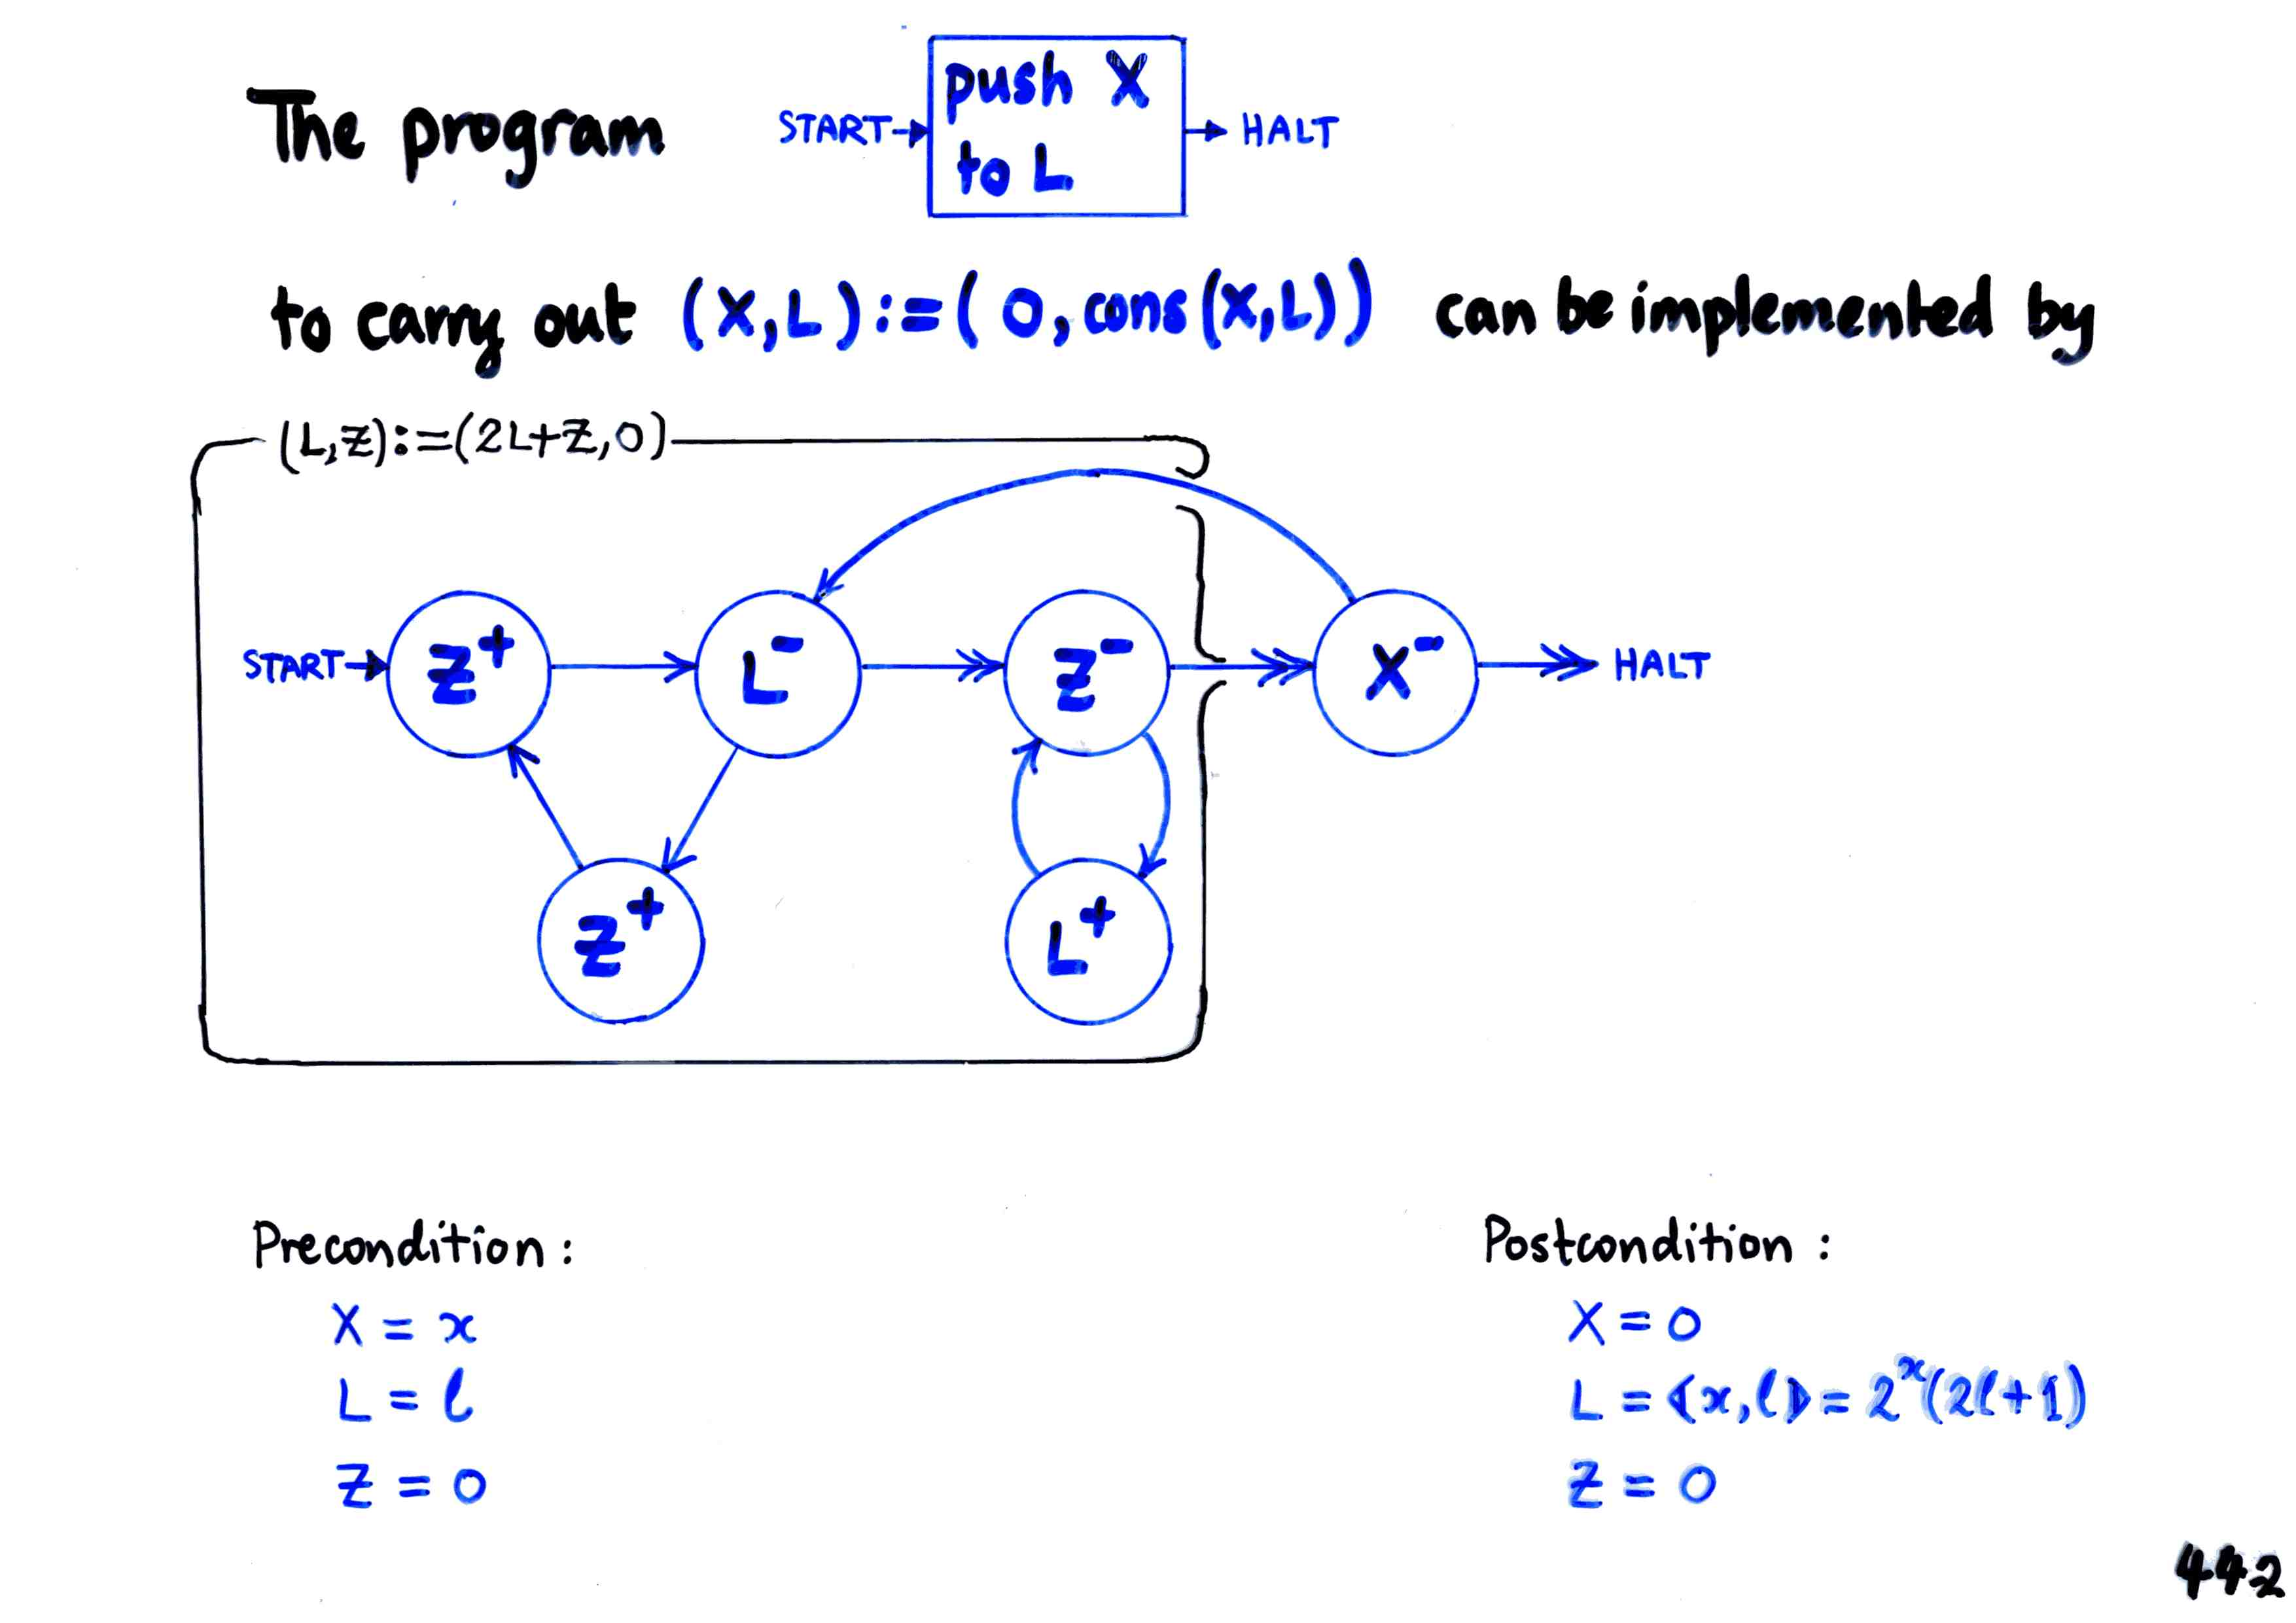 push X
The program START HALT
to L
to carry out (X,L):=(0,cons(X,L)) can be implemented by
(L,Z):=(2L+Z,0)
START Z⁺ L⁻ Z⁻ X⁻ HALT
Z⁺ L⁺
Precondition: Postcondition:
X = x X = 0
L = ℓ L = ⟪x,ℓ⟫ = 2ˣ(2ℓ+1)
Z = 0 Z = 0
442